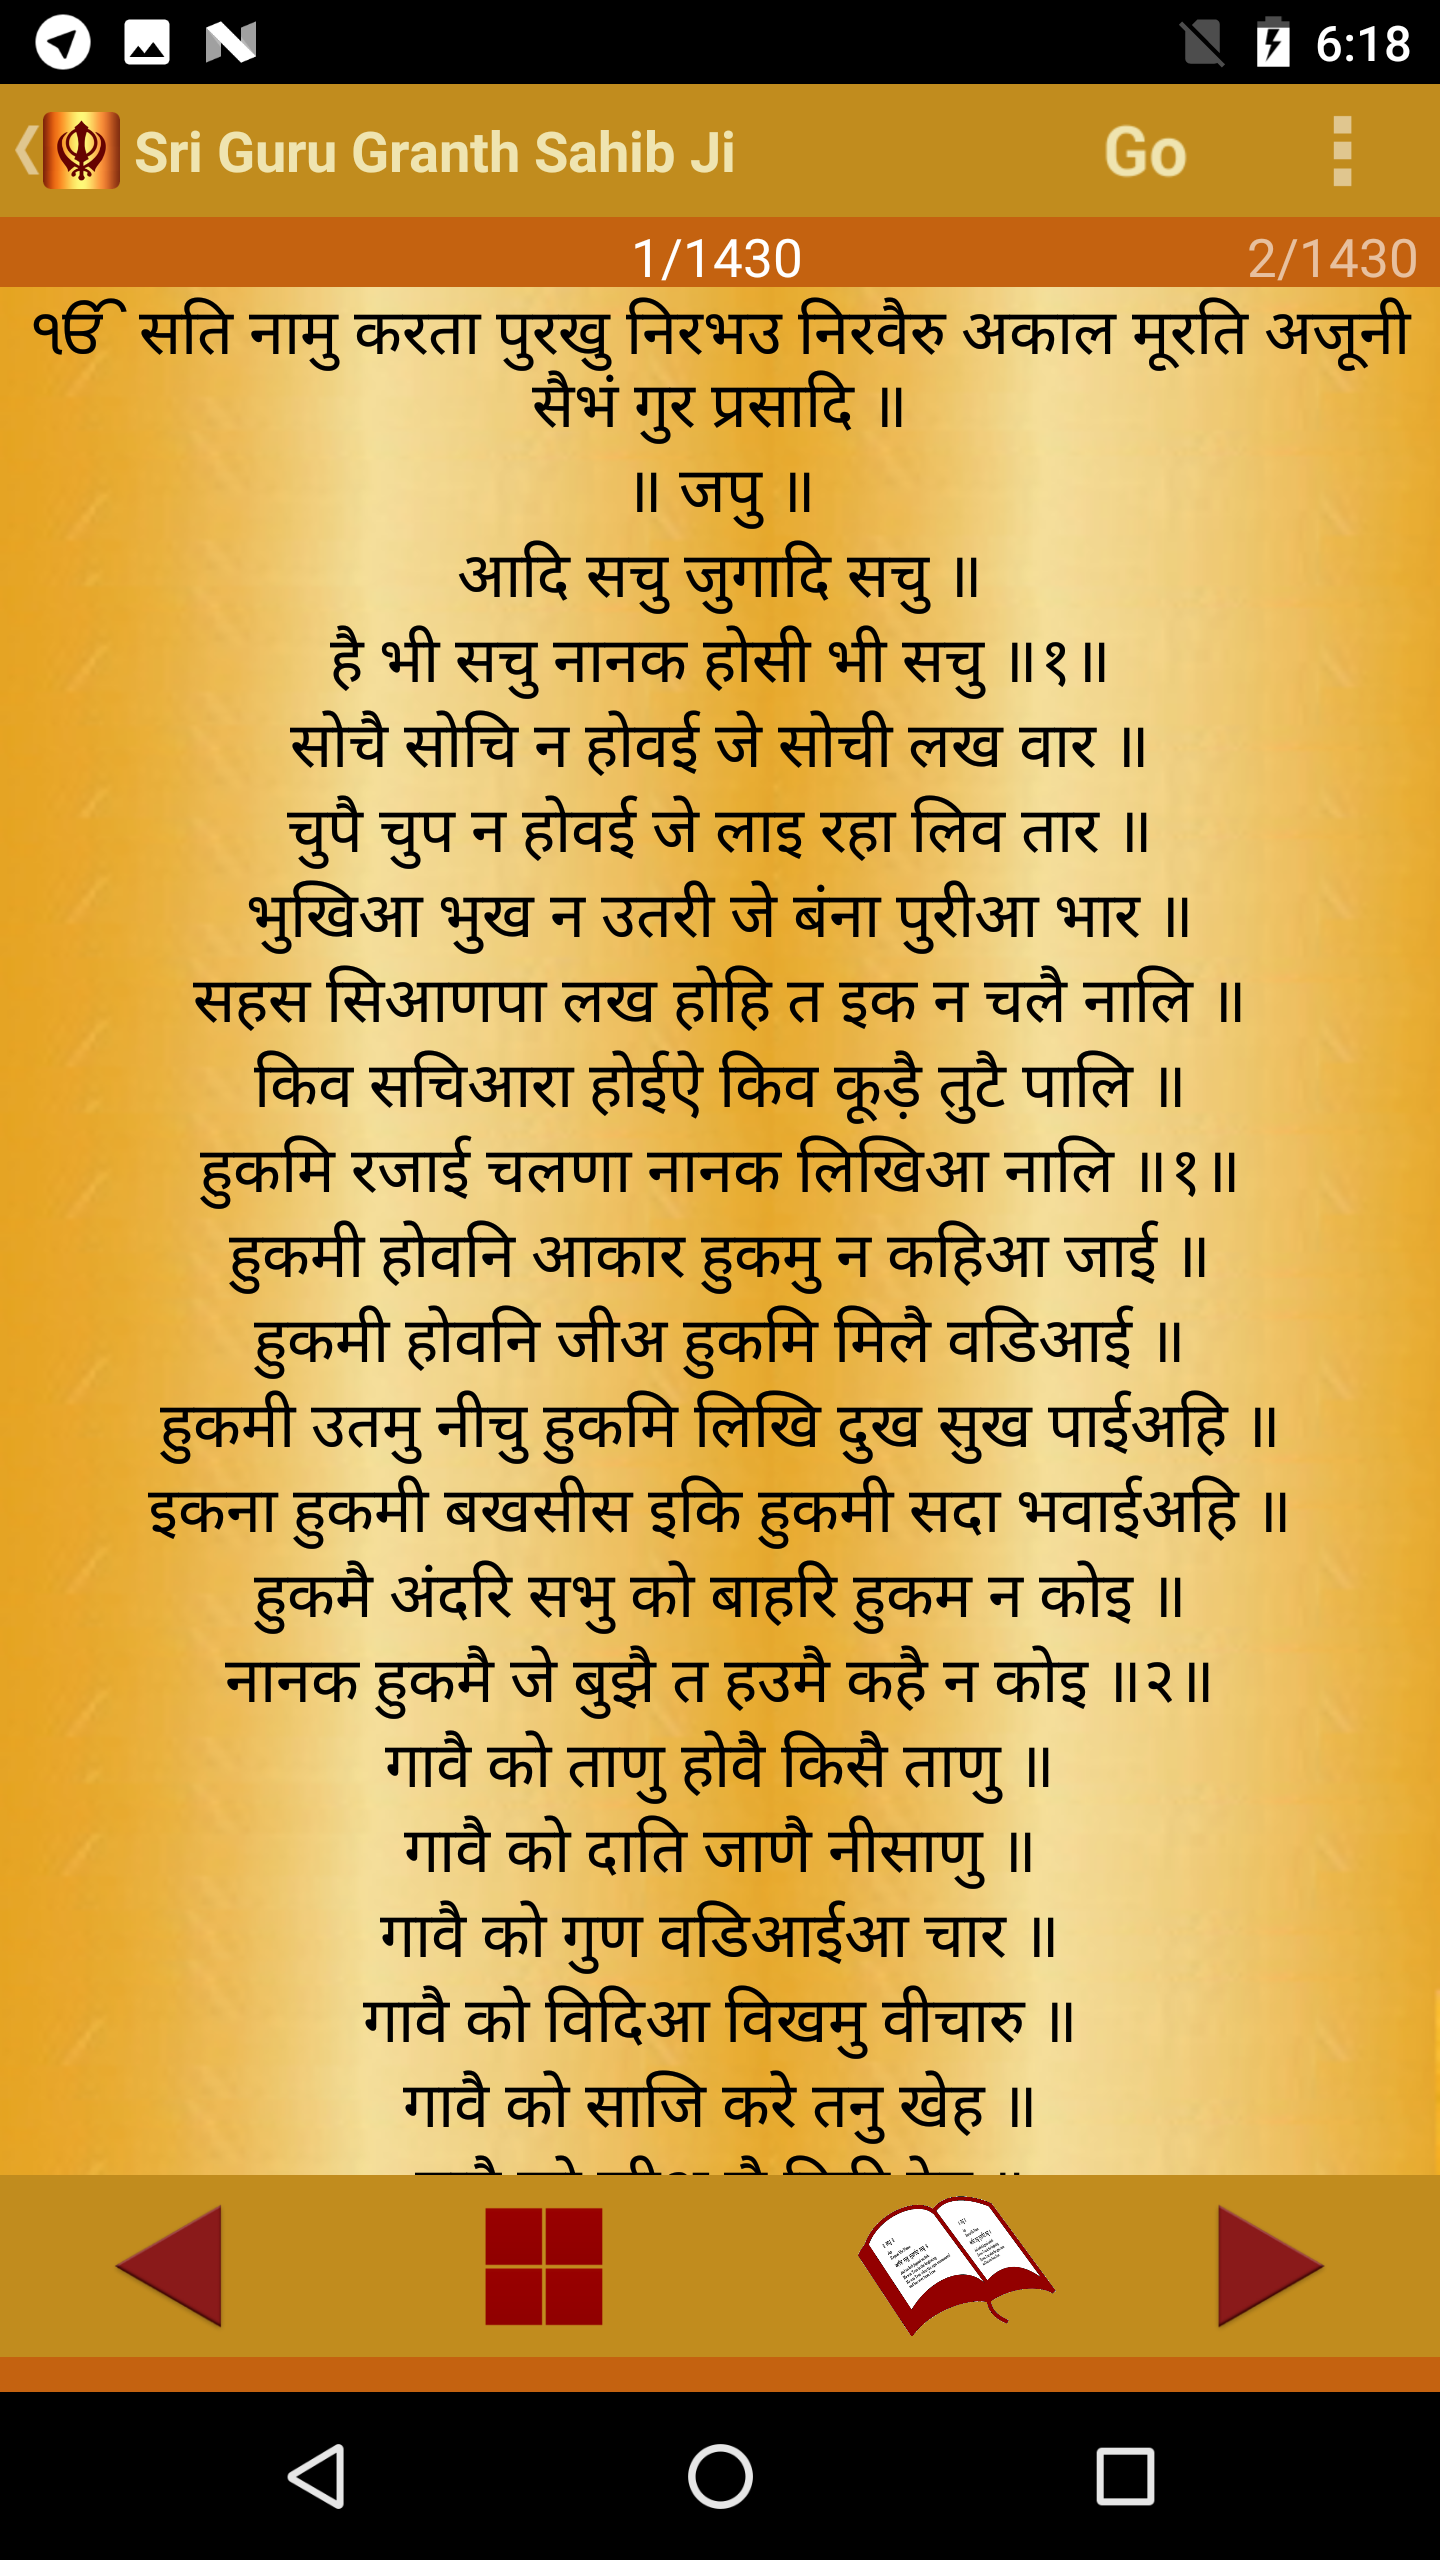 6:18
Sri Guru Granth Sahib Ji
Go
1/1430
2/1430
ੴ सति नामु करता पुरखु निरभउ निरवैरु अकाल मूरति अजूनी
सैभं गुर प्रसादि ॥
॥ जपु ॥
आदि सचु जुगादि सचु ॥
है भी सचु नानक होसी भी सचु ॥१॥
सोचै सोचि न होवई जे सोची लख वार ॥
चुपै चुप न होवई जे लाइ रहा लिव तार ॥
भुखिआ भुख न उतरी जे बंना पुरीआ भार ॥
सहस सिआणपा लख होहि त इक न चलै नालि ॥
किव सचिआरा होईऐ किव कूड़ै तुटै पालि ॥
हुकमि रजाई चलणा नानक लिखिआ नालि ॥१॥
हुकमी होवनि आकार हुकमु न कहिआ जाई ॥
हुकमी होवनि जीअ हुकमि मिलै वडिआई ॥
हुकमी उतमु नीचु हुकमि लिखि दुख सुख पाईअहि ॥
इकना हुकमी बखसीस इकि हुकमी सदा भवाईअहि ॥
हुकमै अंदरि सभु को बाहरि हुकम न कोइ ॥
नानक हुकमै जे बुझै त हउमै कहै न कोइ ॥२॥
गावै को ताणु होवै किसै ताणु ॥
गावै को दाति जाणै नीसाणु ॥
गावै को गुण वडिआईआ चार ॥
गावै को विदिआ विखमु वीचारु ॥
गावै को साजि करे तनु खेह ॥